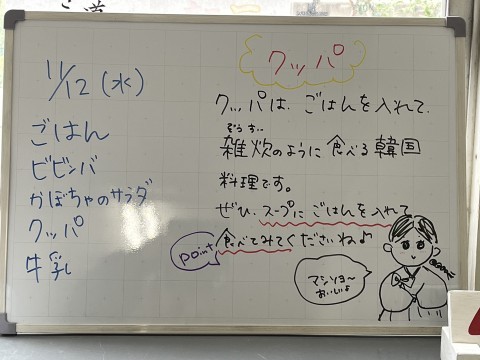 11/12(水)
ごはん
ビビンバ
かぼちゃのサラダ
クッパ
牛乳
クッパ
クッパは、ごはんを入れて、
ぞうすい
雑炊のように食べる韓国
料理です。
ぜひ、スープにごはんを入れて
食べてみてくださいね♪
point
マシソヨ〜
おいしいよ